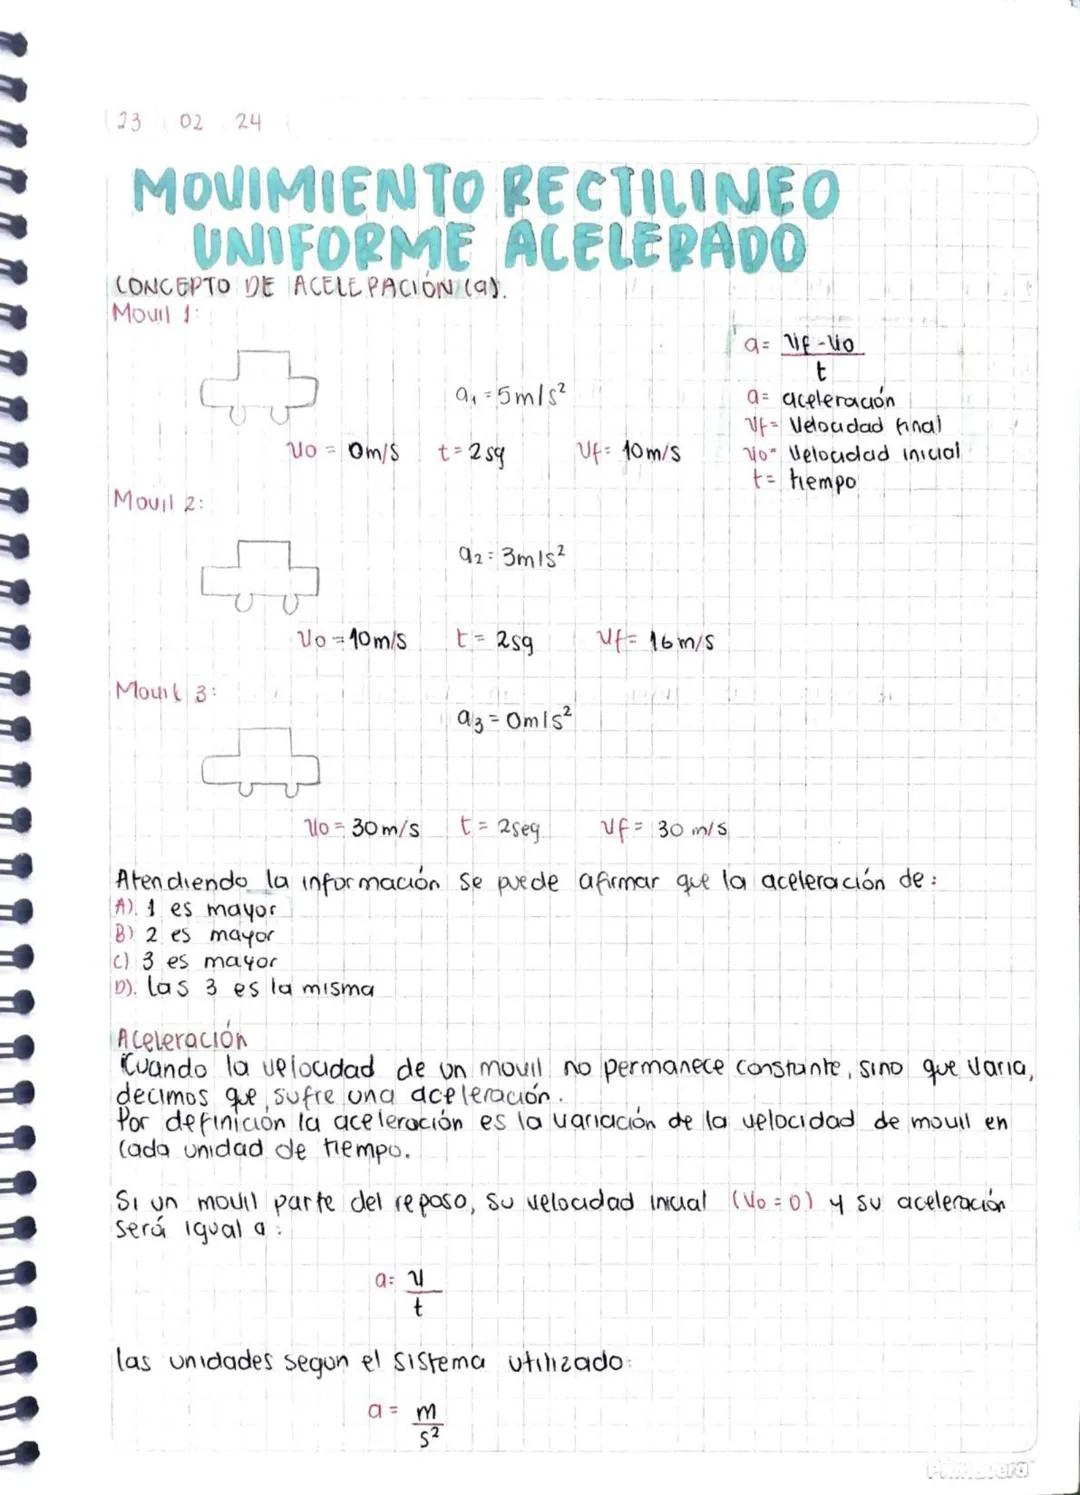 23 02 24
MOVIMIENTO RECTILINEO
UNIFORME ACELERADO
CONCEPTO DE ACELERACIÓN (a).
Movil 1:
a= Vf-Vo
t
a1 = 5m/s²
a= aceleración
Vf= Velocidad final
Vo = 0m/s t= 2sg Vf= 10m/s
Vo= Velocidad inicial
t= tiempo
Movil 2:
a2= 3m/s²
Vo = 10m/s t= 2sg Vf= 16m/s
Movil 3:
a3 = 0m/s²
Vo = 30m/s t= 2seg Vf= 30 m/s
Atendiendo la información se puede afirmar que la aceleración de:
A). 1 es mayor
B) 2 es mayor
C) 3 es mayor
D). las 3 es la misma
Aceleración
Cuando la velocidad de un movil no permanece constante, sino que varia,
decimos que sufre una aceleración.
Por definición la aceleración es la variación de la velocidad de movil en
cada unidad de tiempo.
Si un movil parte del reposo, su velocidad inicial (Vo = 0) y su aceleración
será igual a:
a= V
t
las unidades segun el sistema utilizado:
a = m
s²
Primavera